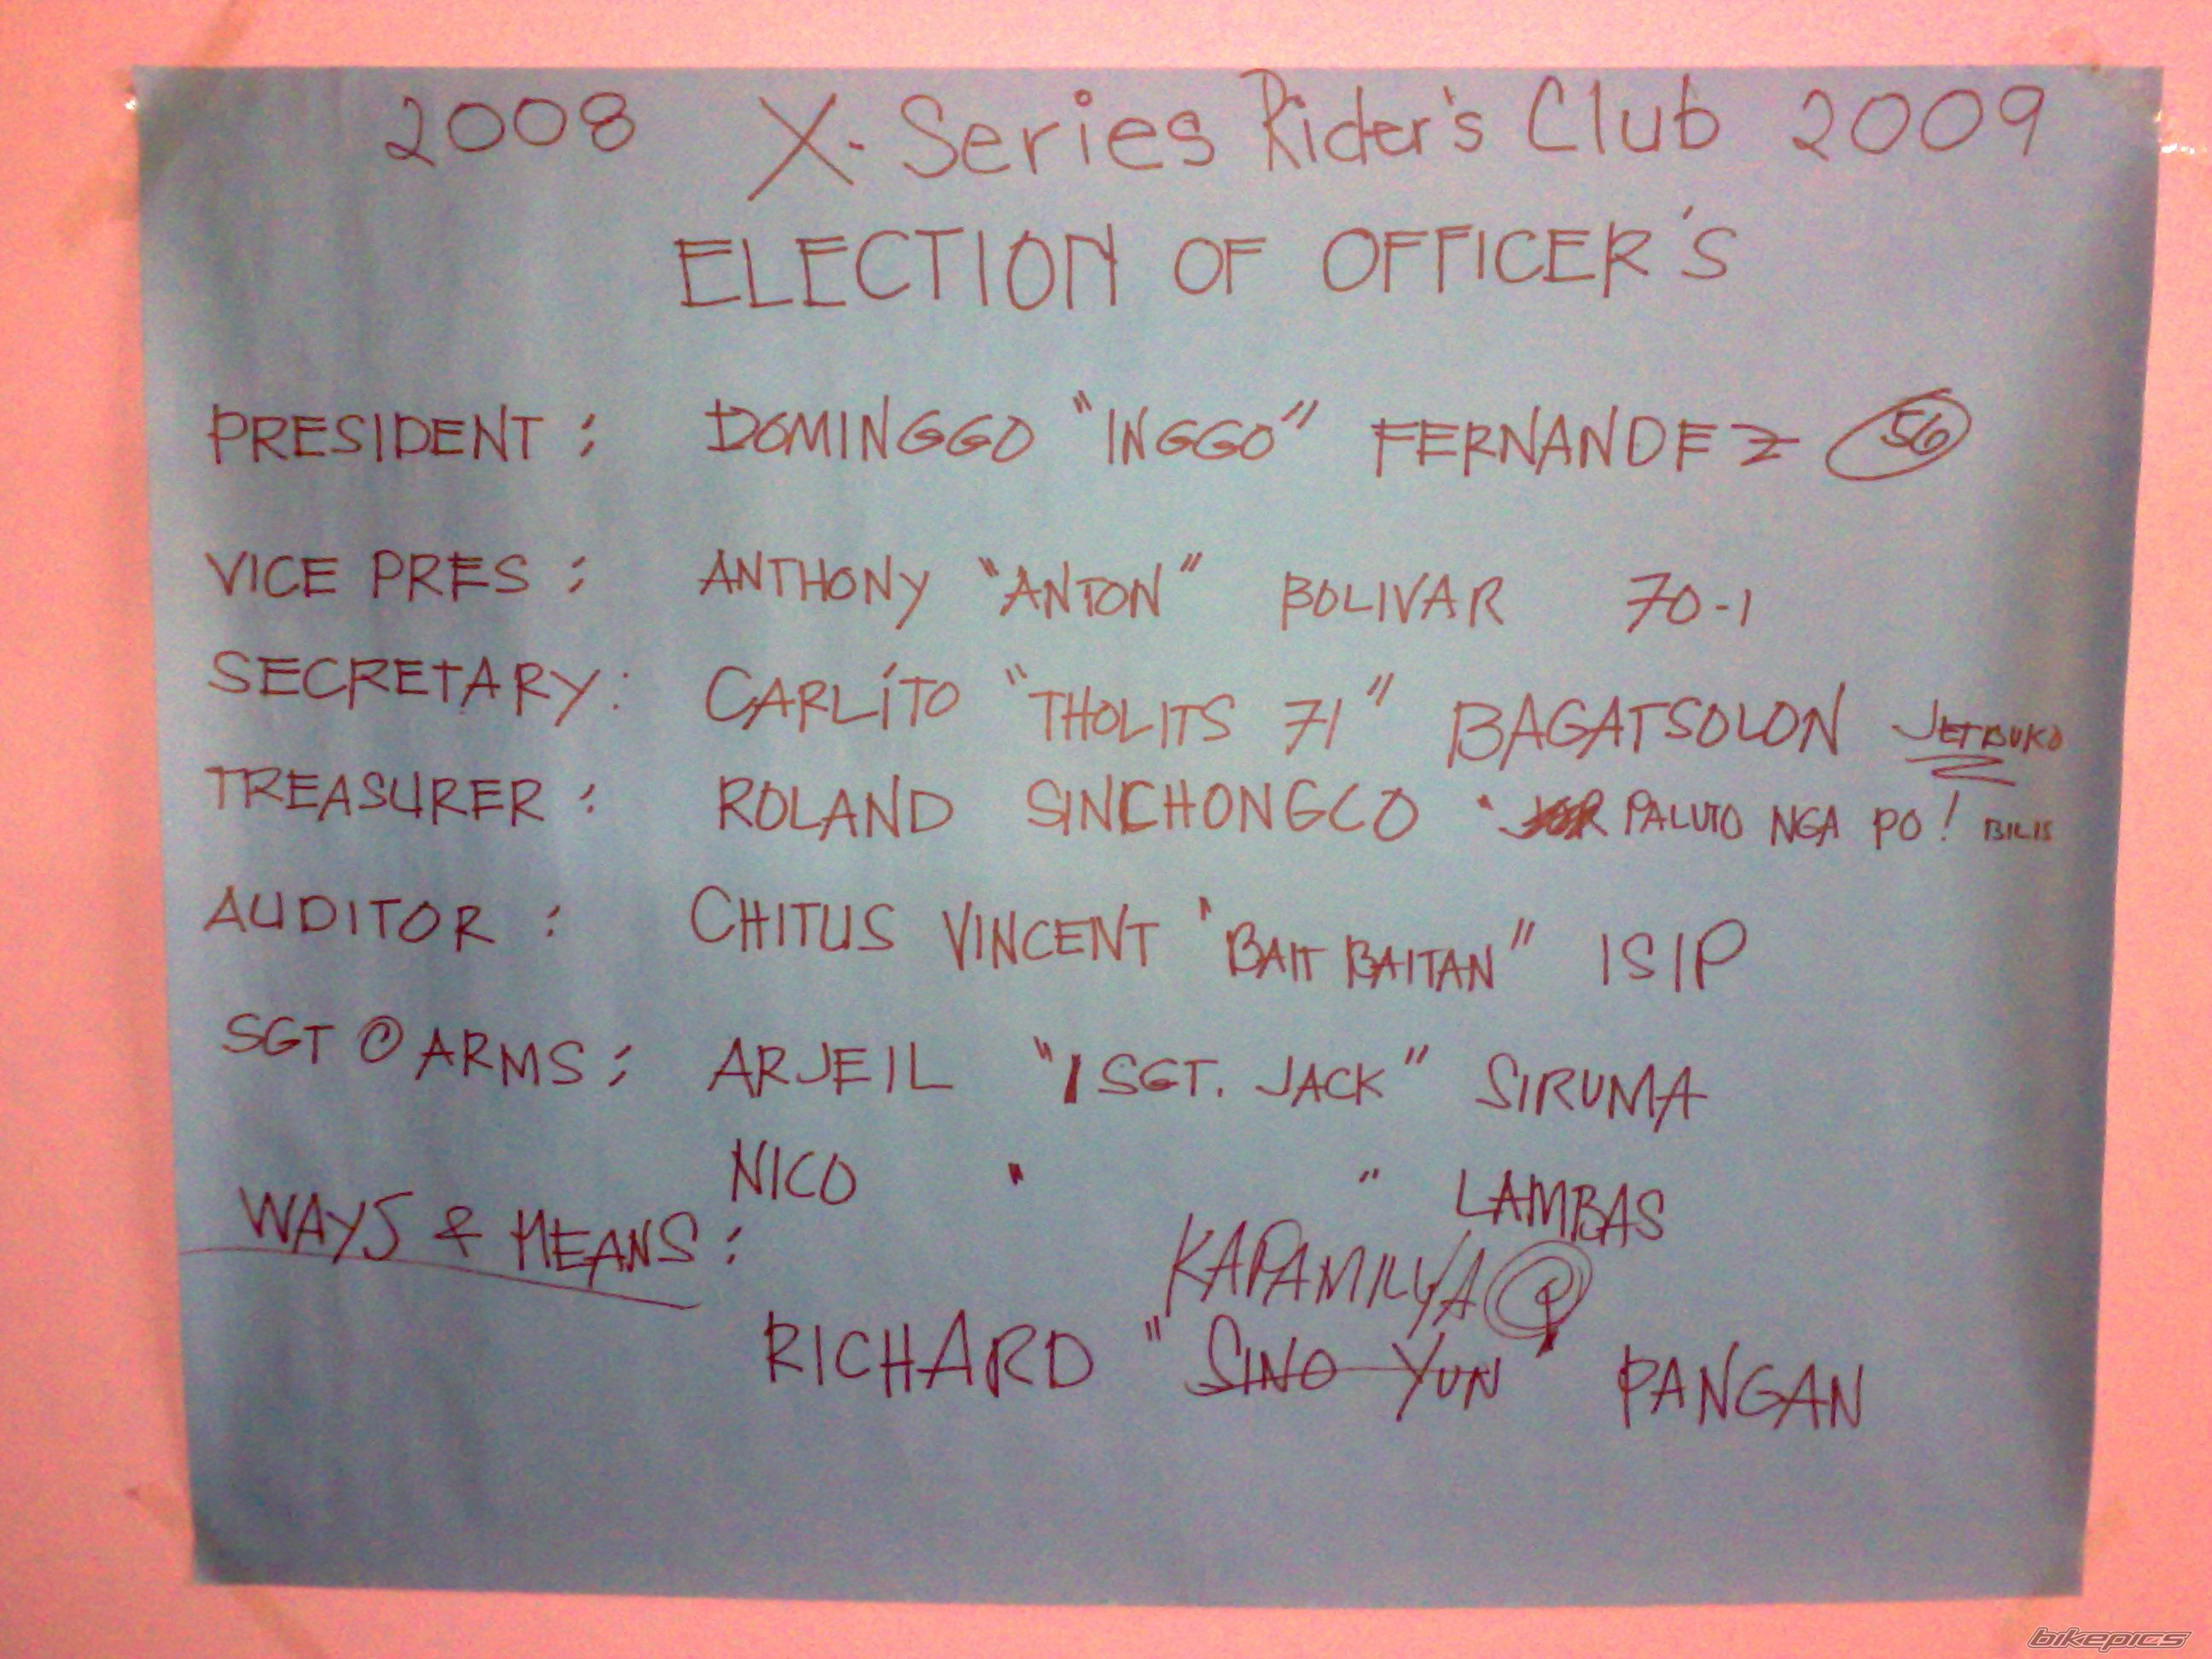 2008 X-Series Rider's Club 2009
ELECTION OF OFFICER'S
PRESIDENT : DOMINGGO "INGGO" FERNANDEZ 56
VICE PRES : ANTHONY "ANTON" BOLIVAR 70-1
SECRETARY : CARLÍTO "THOLITS 71" BAGATSOLON JETBUKO
TREASURER : ROLAND SINCHONGCO " PALUTO NGA PO! BILIS
AUDITOR : CHITUS VINCENT "BAIT BAITAN" ISIP
SGT @ ARMS : ARJEIL "1 SGT. JACK" SIRUMA
NICO " " LAMBAS
WAYS & MEANS :
KAPAMILYA
RICHARD "SINO YUN" PANGAN
bikepics